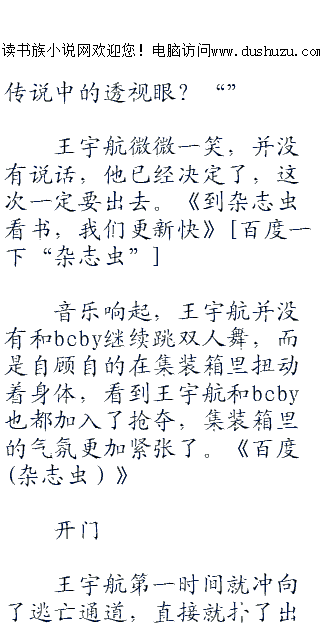 读书族小说网欢迎您！电脑访问www.dushuzu.com
传说中的透视眼？“”
王宇航微微一笑，并没
有说话，他已经决定了，这
次一定要出去。《到杂志虫
看书，我们更新快》[百度一
下“杂志虫”]
音乐响起，王宇航并没
有和bcby继续跳双人舞，而
是自顾自的在集装箱里扭动
着身体，看到王宇航和bcby
也都加入了抢夺，集装箱里
的气氛更加紧张了。《百度
(杂志虫）》
开门
王宇航第一时间就冲向
了逃亡通道，直接就 了出